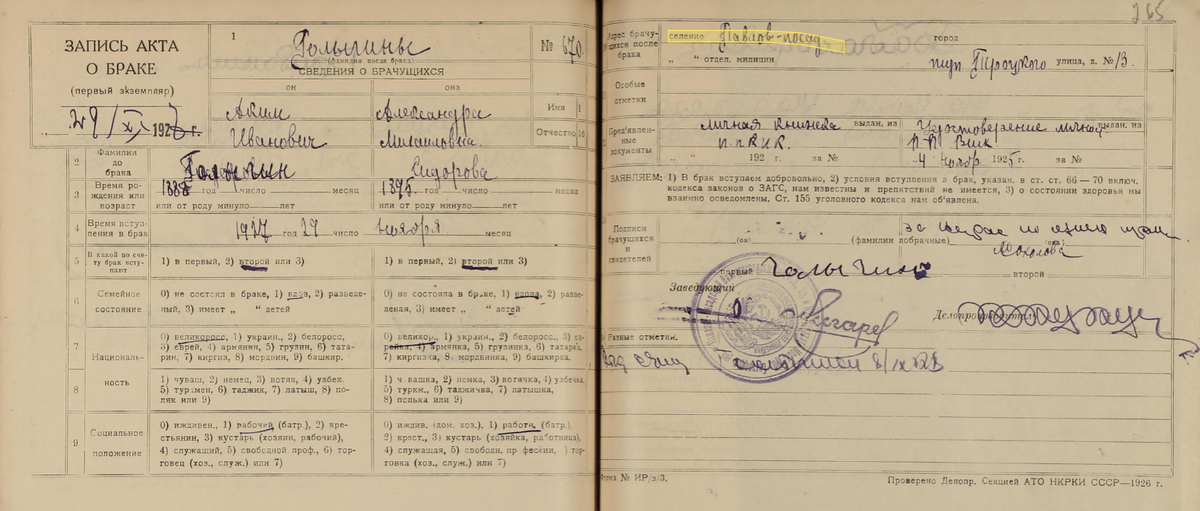 265
ЗАПИСЬ АКТА
О БРАКЕ
(первый экземпляр)
29/XI 1927 г.
1
Голыгины
(фамилия после брака)
№ 670
СВЕДЕНИЯ О БРАЧУЩИХСЯ
он
она
Аким
Александра
Имя 1
Иванович
Михайловна
Отчество 16
2 Фамилии до брака
Сидорова
3 Время рождения или возраст
188 год число месяц
1895 год число месяц
или от роду минуло лет
или от роду минуло лет
4 Время вступления в брак
1927 год 29 число ноября месяц
5 В какой по счету брак вступают
1) в первый, 2) второй или 3)
1) в первый, 2) второй или 3)
6 Семейное состояние
0) не состоял в браке, 1) вдов, 2) разведеный, 3) имеет „ “ детей
0) не состояла в браке, 1) вдова, 2) разведеная, 3) имеет „ “ детей
7 Национальность
0) великоросс, 1) украин., 2) белоросс,
3) еврей, 4) армянин, 5) грузин, 6) татарин, 7) киргиз, 8) мордвин, 9) башкир.
0) великор., 1) украин., 2) белоросс., 3) еврейка, 4) армянка, 5) грузинка, 6) татарка,
7) киргизка, 8) мордвинка, 9) башкирка.
8
1) чуваш, 2) немец, 3) вотяк, 4) узбек.
5) туркмен, 6) таджик, 7) латыш, 8) поляк или 9)
1) ч вашка, 2) немка, 3) вотячка, 4) узбечка,
5) туркм., 6) таджичка, 7) латышка,
8) полька или 9)
9 Социальное положение
0) иждивен., 1) рабочий (батр.), 2) крестьянин, 3) кустарь (хозяин, рабочий),
4) служащий, 5) свободной проф., 6) торговец (хоз., служ.) или 7)
0) иждив. (дом. хоз.), 1) работн. (батр.),
2) крест., 3) кустарь (хозяйка, работница),
4) служащая, 5) свободн. пр фессии, 6) торговка (хоз., служ.) или 7)
Адрес брачущихся после брака
селение Павлов-посад
город
„ “ отдел. милиции
Троцкого улица, д. № 13.
Особые отметки
Пред'явленные документы
личная книжка выдан. из
Удостоверение личной выдан. из
„ “ 192 г. за №
4 ноябр 1925 г. за №
ЗАЯВЛЯЕМ: 1) В брак вступаем добровольно, 2) условия вступления в брак, указан. в ст. ст. 66 — 70 включ.
кодекса законов о ЗАГС, нам известны и препятствий не имеется, 3) о состоянии здоровья мы
взаимно осведомлены. Ст. 155 уголовного кодекса нам об'явлена.
Подписи брачущихся и свидетелей
(он) (фамилии добрачные) (она)
Соколова
первый Голыгин
второй
Заведующий
Делопроизводитель
Разные отметки:
Форма № ИР/з/3.
Проверено Делопр. Секцией АТО НКРКИ СССР—1926 г.